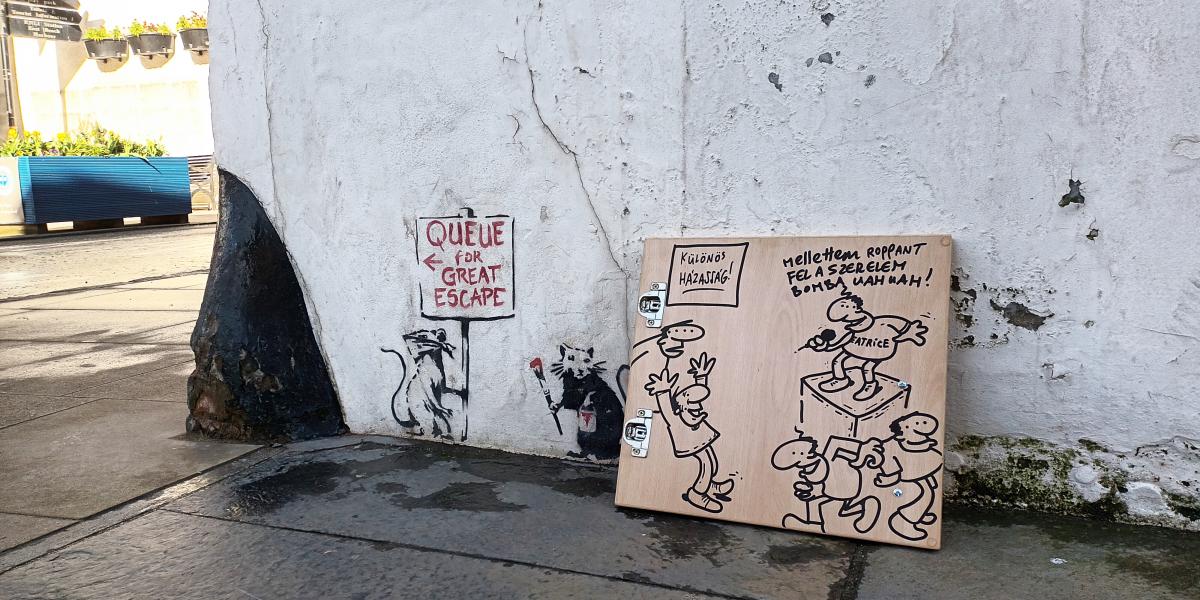 QUEUE
FOR
GREAT
ESCAPE
KÜLÖNÖS
HÁZASSÁG!
MELLETTEM ROPPANT
FEL A SZERELEM
BOMBA UAH UAH!
PATRICE